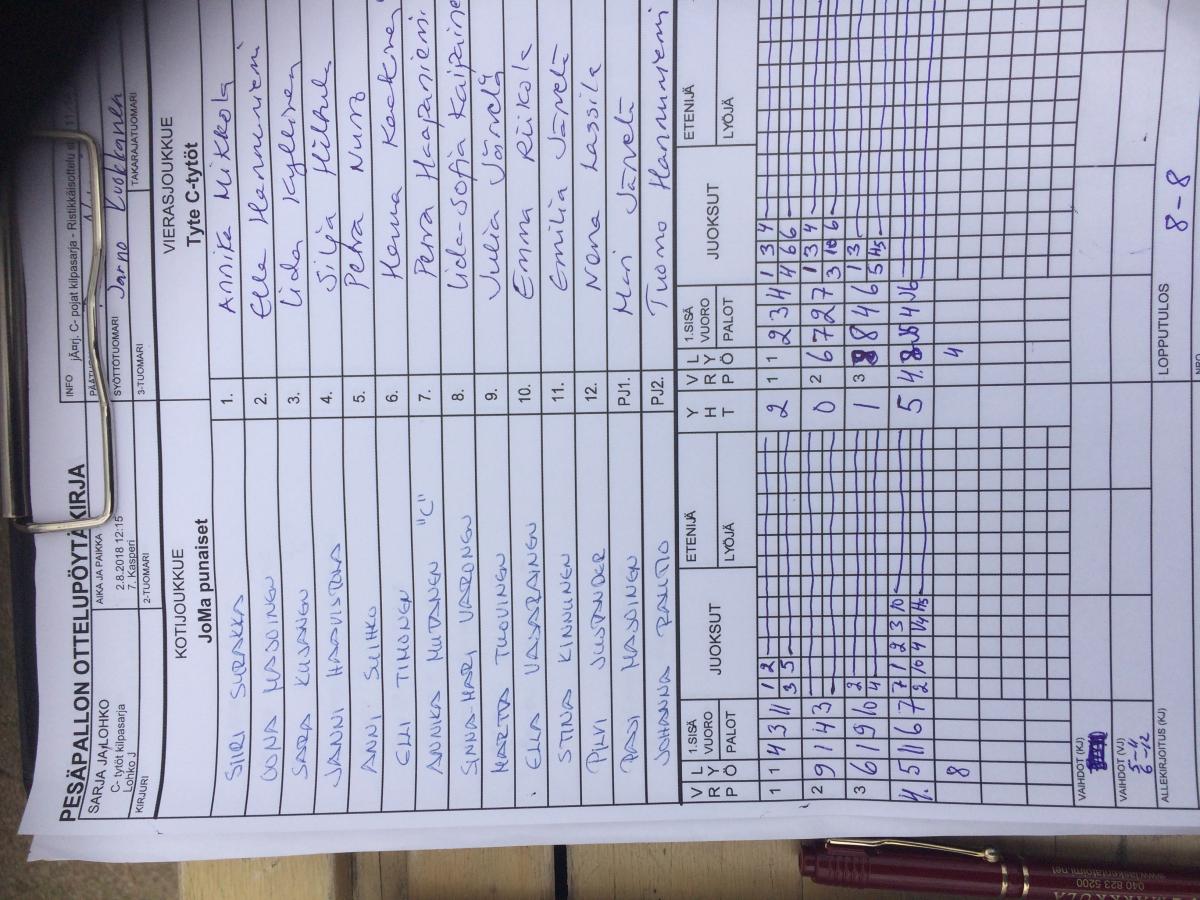 PESÄPALLON OTTELUPÖYTÄKIRJA
SARJA JA LOHKO
C- tytöt kilpasarja
Lohko J
AIKA JA PAIKKA
2.8.2018 12:15
7. Kasperi
INFO
C- pojat kilpasarja - Ristikkäisottelu
KIRJURI
2-TUOMARI
SYÖTTOTUOMARI
Jarno Kuokkanen
3-TUOMARI
TAKARAJATUOMARI
KOTIJOUKKUE
JoMa punaiset
VIERASJOUKKUE
Tyte C-tytöt
SIRI SURAKKA 1. Annika Mikkola
OONA MASOINEN 2. Ella Hannuniemi
SARA KUJANEN 3. Iida Kyllinen
JANNI HAAVISTOLA 4. Silja Hilska
ANNI SUIHKO 5. Petra Nuro
ELLI TIMONEN 6. Hanna
ANNIKA MUTANEN "C" 7. Petra Haapaniemi
SINNA-MARI VARONEN 8. Iida-Sofia Kaipaine
MARTTA TUOVINEN 9. Julia Järvelä
ELLA VASARAINEN 10. Emma Riikola
STINA KINNUNEN 11. Emilia Järvelä
PILVI JUSTANDER 12. Nena Lassila
PASI MASOINEN PJ1. Mari Järvelä
JOHANNA RAUTIO PJ2. Tuomo Hannuniemi
V R P
L Y Ö
1.SISÄ VUORO
PALOT
JUOKSUT
ETENIJÄ
LYÖJÄ
Y H T
V R P
L Y Ö
1.SISÄ VUORO
PALOT
JUOKSUT
ETENIJÄ
LYÖJÄ
1 1 4 3 11 1 2 2 1 1 2 3 4 1 3 4
3 5 4 6 6
2 9 1 4 3 0 2 6 7 2 7 1 3 4
3 10 6
3 6 1 9 10 2 1 3 8 8 4 6 1 3
4 5 Hs
4. 5 11 6 7 7 1 2 3 10 5 4. 8
2 10 4 1/4 Hs
8 4
VAIHDOT (KJ)
VAIHDOT (VJ)
5-11
6-12
ALLEKIRJOITUS (KJ)
LOPPUTULOS
8-8
040 823 5200